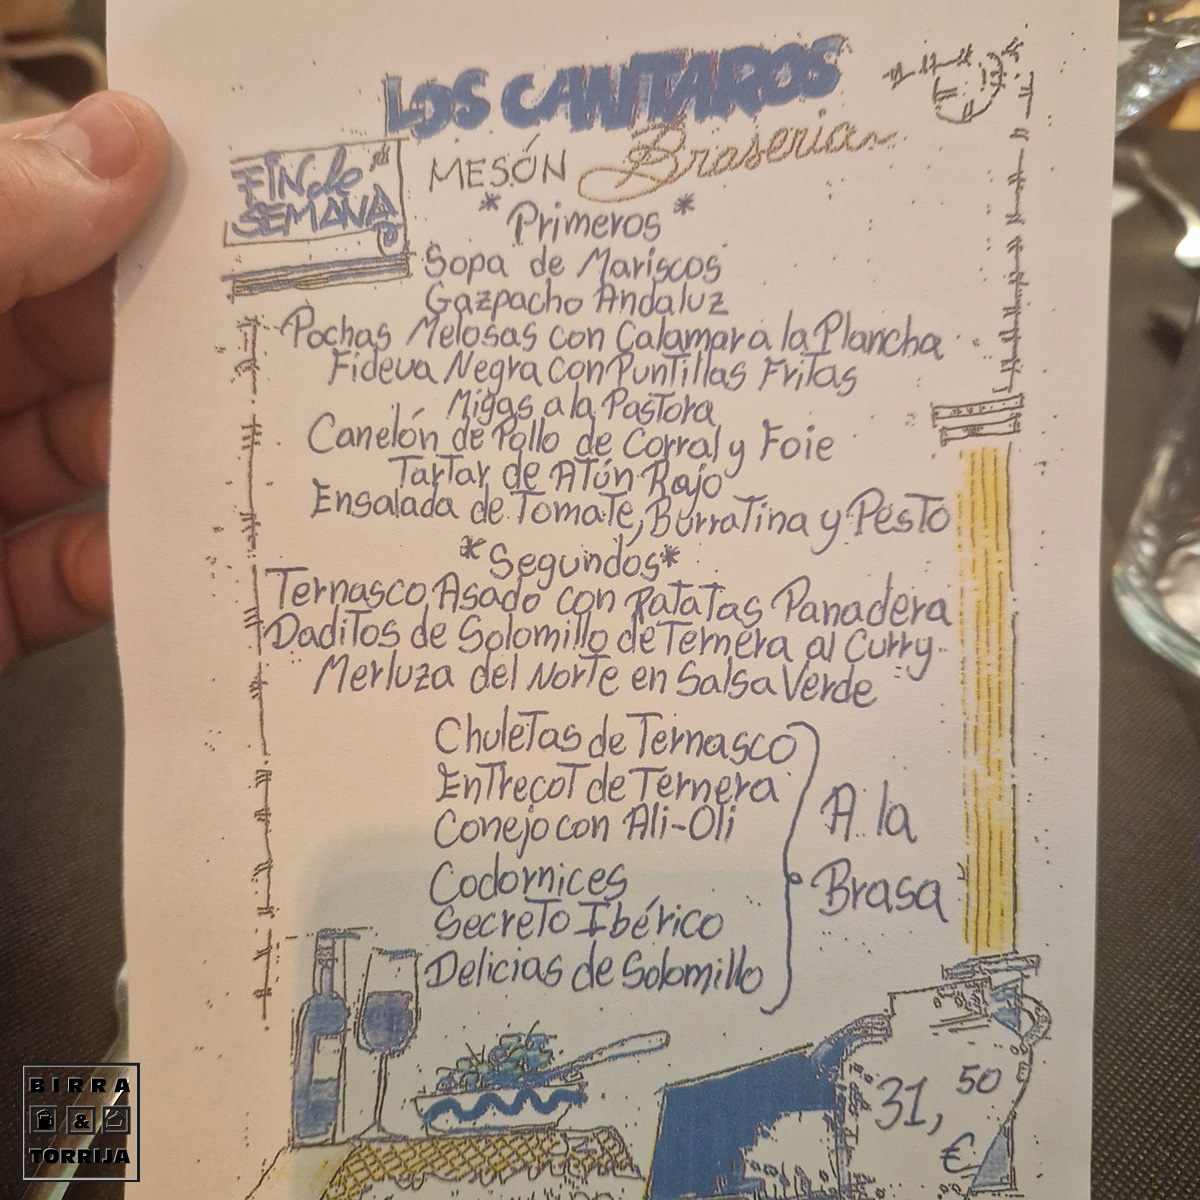 LOS CANTAROS
MESÓN Braseria
FIN de SEMANA
* Primeros *
Sopa de Mariscos
Gazpacho Andaluz
Pochas Melosas con Calamar a la Plancha
Fideua Negra con Puntillas Fritas
Migas a la Pastora
Canelón de Pollo de Corral y Foie
Tartar de Atún Rojo
Ensalada de Tomate, Burratina y Pesto
*Segundos*
Ternasco Asado con Patatas Panadera
Daditos de Solomillo de Ternera al Curry
Merluza del Norte en Salsa Verde
Chuletas de Ternasco
Entrecot de Ternera
Conejo con Ali-Oli
Codornices
Secreto Ibérico
Delicias de Solomillo
A la
Brasa
31,50
€
BIRRA
&
TORRIJA